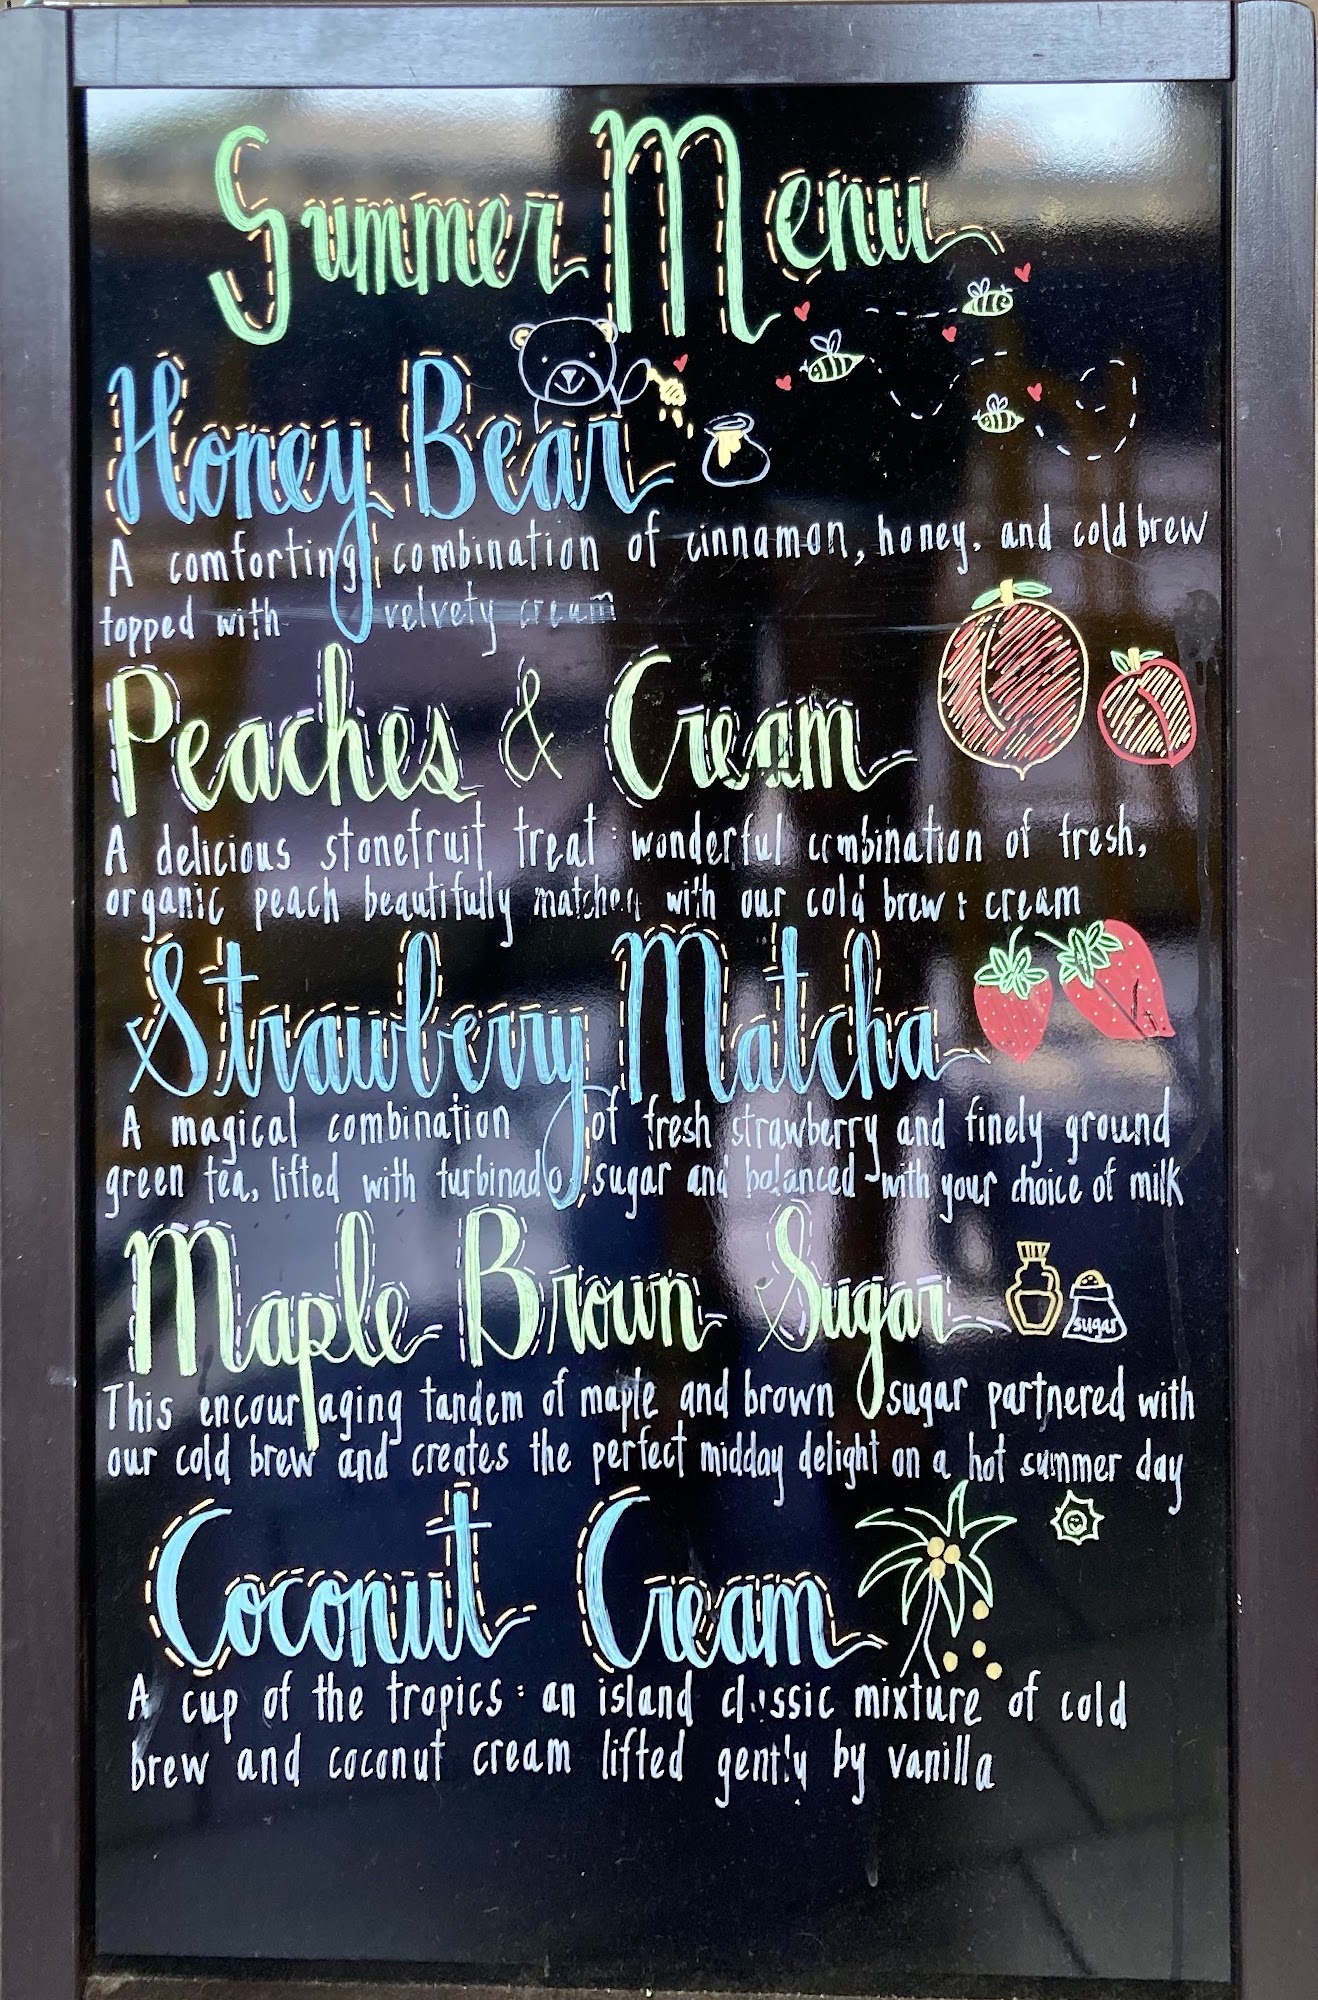 Summer Menu
Honey Bear
A comforting combination of cinnamon, honey, and cold brew
topped with velvety cream
Peaches & Cream
A delicious stonefruit treat: wonderful combination of fresh,
organic peach beautifully matched with our cold brew + cream
Strawberry Matcha
A magical combination of fresh strawberry and finely ground
green tea, lifted with turbinado sugar and balanced with your choice of milk
Maple Brown Sugar
sugar
This encouraging tandem of maple and brown sugar partnered with
our cold brew and creates the perfect midday delight on a hot summer day
Coconut Cream
A cup of the tropics: an island classic mixture of cold
brew and coconut cream lifted gently by vanilla